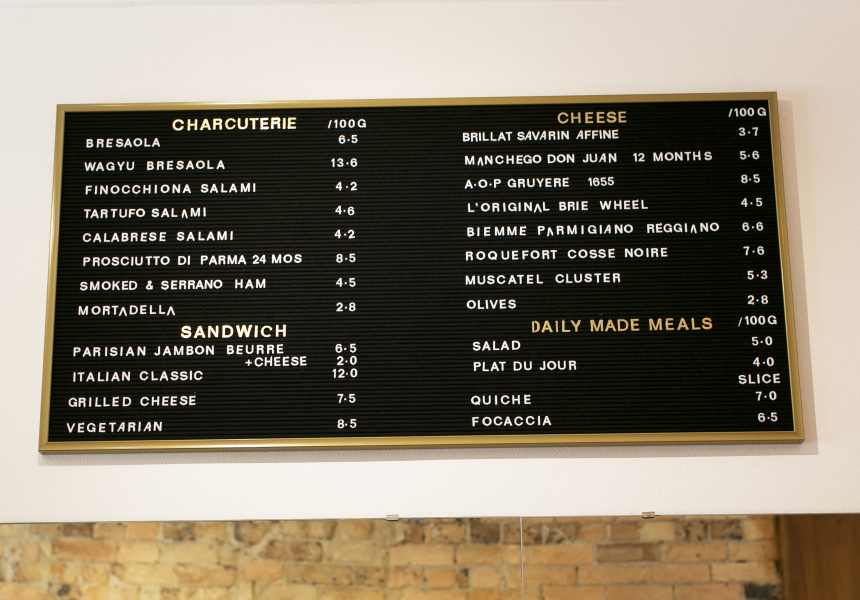 CHARCUTERIE /100G
BRESAOLA 6·5
WAGYU BRESAOLA 13·6
FINOCCHIONA SALAMI 4·2
TARTUFO SALAMI 4·6
CALABRESE SALAMI 4·2
PROSCIUTTO DI PARMA 24 MOS 8·5
SMOKED & SERRANO HAM 4·5
MORTADELLA 2·8
SANDWICH
PARISIAN JAMBON BEURRE 6·5
+CHEESE 2·0
ITALIAN CLASSIC 12·0
GRILLED CHEESE 7·5
VEGETARIAN 8·5
CHEESE /100G
BRILLAT SAVARIN AFFINE 3·7
MANCHEGO DON JUAN 12 MONTHS 5·6
A·O·P GRUYERE 1655 8·5
L'ORIGINAL BRIE WHEEL 4·5
BIEMME PARMIGIANO REGGIANO 6·6
ROQUEFORT COSSE NOIRE 7·6
MUSCATEL CLUSTER 5·3
OLIVES 2·8
DAILY MADE MEALS /100G
SALAD 5·0
PLAT DU JOUR 4·0
SLICE
QUICHE 7·0
FOCACCIA 6·5